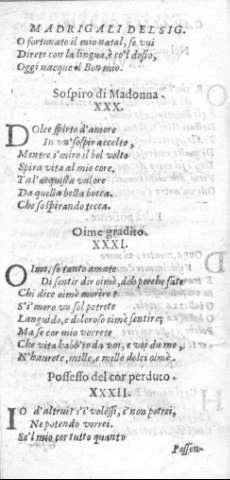 MADRIGALI DEL SIG.
O fortunato il mio natal, se vui
Direte con la lingua, e co'l desio,
Oggi nacque il Ben mio.
Sospiro di Madonna.
XXX.
Dolce spirto d'amore
In vn' sospir accolto,
Mentre i' miro il bel volto
Spira vita al mio core,
Tal' acquista valore
Da quella bella bocca.
Che sospirando tocca.
Oime gradito.
XXXI.
Oime, se tanto amate
Di sentir dir oimè, deh perche fate
Chi dice oimè morire?
S'i' moro vn sol potrete
Languido, e doloroso oimè sentire;
Ma se cor mio vorrete
Che vita habb' io da voi, e voi da me,
N'haurete, mille, e mille dolci oimè.
Possesso del cor perduto.
XXXII.
Io d'altrui s'i' volessi, i' non potrei,
Ne potendo vorrei.
Se'l mio cor tutto quanto
Posses-